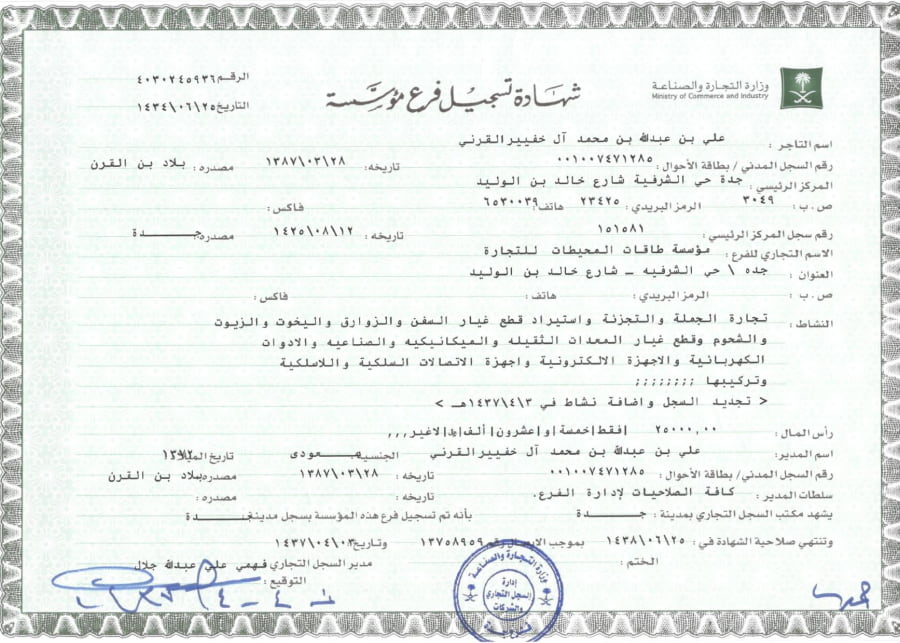 وزارة التجارة والصناعة
Ministry of Commerce and Industry
شهادة تسجيل فرع مؤسسة
الرقم ٤٠٣٠٢٤٥٩٣٦
التاريخ ١٤٣٤\٠٦\٢٥
اسم التاجر : علي بن عبدالله بن محمد آل خفيير القرني
رقم السجل المدني / بطاقة الأحوال : ٠٠١٠٠٧٤٧١٢٨٥ تاريخه : ١٣٨٧\٠٣\٢٨ مصدره : بلاد بن القرن
المركز الرئيسي : جدة حي الشرفية شارع خالد بن الوليد
ص . ب : ٣٠٤٩ الرمز البريدي : ٢٣٤٢٥ هاتف : ٦٥٣٠٠٣٩ فاكس :
رقم سجل المركز الرئيسي : ١٥١٥٨١ تاريخه : ١٤٢٥\٠٨\١٢ مصدره : جـــــدة
الاسم التجاري للفرع : مؤسسة طاقات المحيطات للتجارة
العنوان : جده \ حي الشرفيه ـ شارع خالد بن الوليد
ص . ب : الرمز البريدي : هاتف : فاكس :
النشاط : تجارة الجملة والتجزئة واستيراد قطع غيار السفن والزوارق واليخوت والزيوت
والشحوم وقطع غيار المعدات الثقيله والميكانيكيه والصناعيه والادوات
الكهربائية والاجهزة الالكترونية واجهزة الاتصالات السلكية واللاسلكية
وتركيبها ;;;;;;;;
< تجديد السجل واضافة نشاط في ١٤٣٧\٤\٣هـ >
رأس المال : ٢٥٠٠٠,٠٠ |فقط|خمسة|و|عشرون|ألف|لاغير,,,
اسم المدير : علي بن عبدالله بن محمد آل خفيير القرني الجنسية سعودى تاريخ الميلاد ١٣٧٢
رقم السجل المدني / بطاقة الأحوال : ٠٠١٠٠٧٤٧١٢٨٥ تاريخه : ١٣٨٧\٠٣\٢٨ مصدره بلاد بن القرن
سلطات المدير : كافة الصلاحيات لإدارة الفرع. تاريخه : مصدره :
يشهد مكتب السجل التجاري بمدينة : جـــــدة بأنه تم تسجيل فرع هذه المؤسسة بسجل مدينة جـــــدة
وتنتهي صلاحية الشهادة في : ١٤٣٨\٠٦\٢٥ بموجب الايصال رقم ١٣٧٥٨٩٥٩ وتاريخ ١٤٣٧\٠٤\٠٣
الختم : مدير السجل التجاري فهمي علي عبدالله جلال
التوقيع :
وزارة التجارة والصناعة
إدارة
السجل التجاري
والشركات